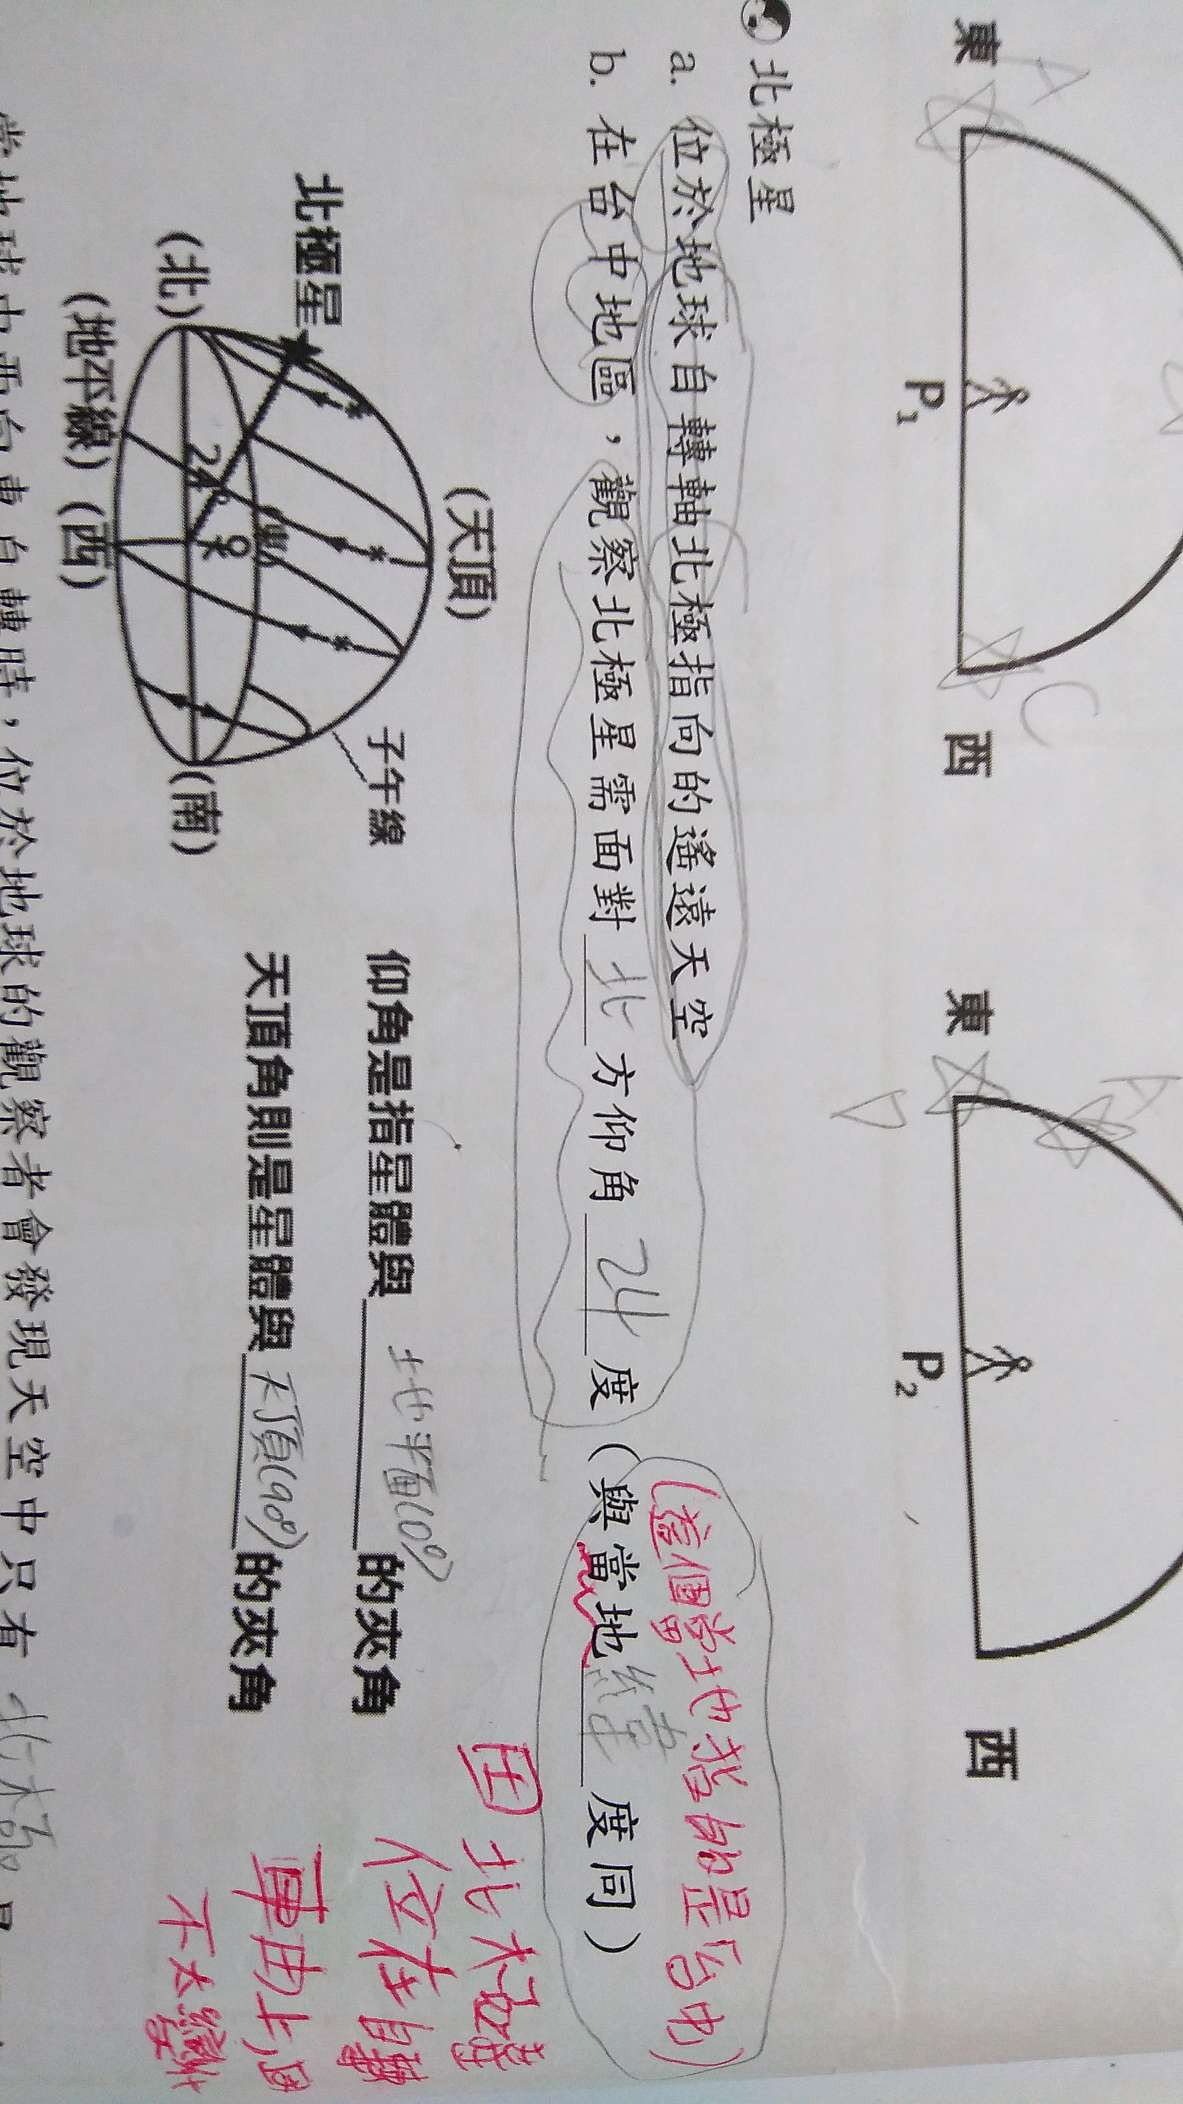 東
A
P₁
西
C
東
A
D
P₂
西
北極星
a. 位於地球自轉軸北極指向的遙遠天空
(這個當地指的是台中)
b. 在台中地區，觀察北極星需面對北方仰角24度（與當地緯度同）
(天頂)
北極星
子午線
(北)
24°
(東)
(南)
(地平線)
(西)
仰角是指星體與地平面(0°)的夾角
天頂角則是星體與天頂(90°)的夾角
因北極星
位在自轉
軸上,因
不太
當地球由西向東自轉時，位於地球的觀察者會發現天空中只有北極星